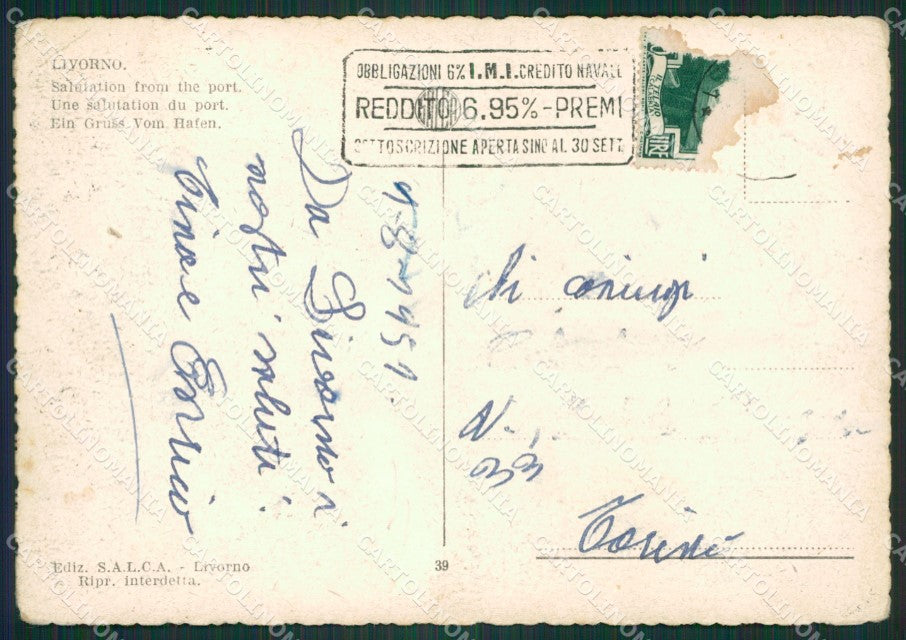 LIVORNO.
Salutation from the port.
Une salutation du port.
Ein Gruss Vom Hafen.
OBBLIGAZIONI 6% I.M.I. CREDITO NAVALE
REDDITO 6.95% - PREMI
SOTTOSCRIZIONE APERTA SINO AL 30 SETT.
LIRE
9-8-1951
Da Livorno i
nostri saluti
Tina e
coniugi
N.
33
Torino
Ediz. S.A.L.C.A. - Livorno
Ripr. interdetta.
39
CARTOLINOMANIA